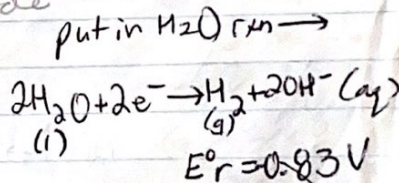 put in H2O rxn →
2H2O+2e⁻→H2+2OH⁻(aq)
(l) (g)
E°r=0.83 V